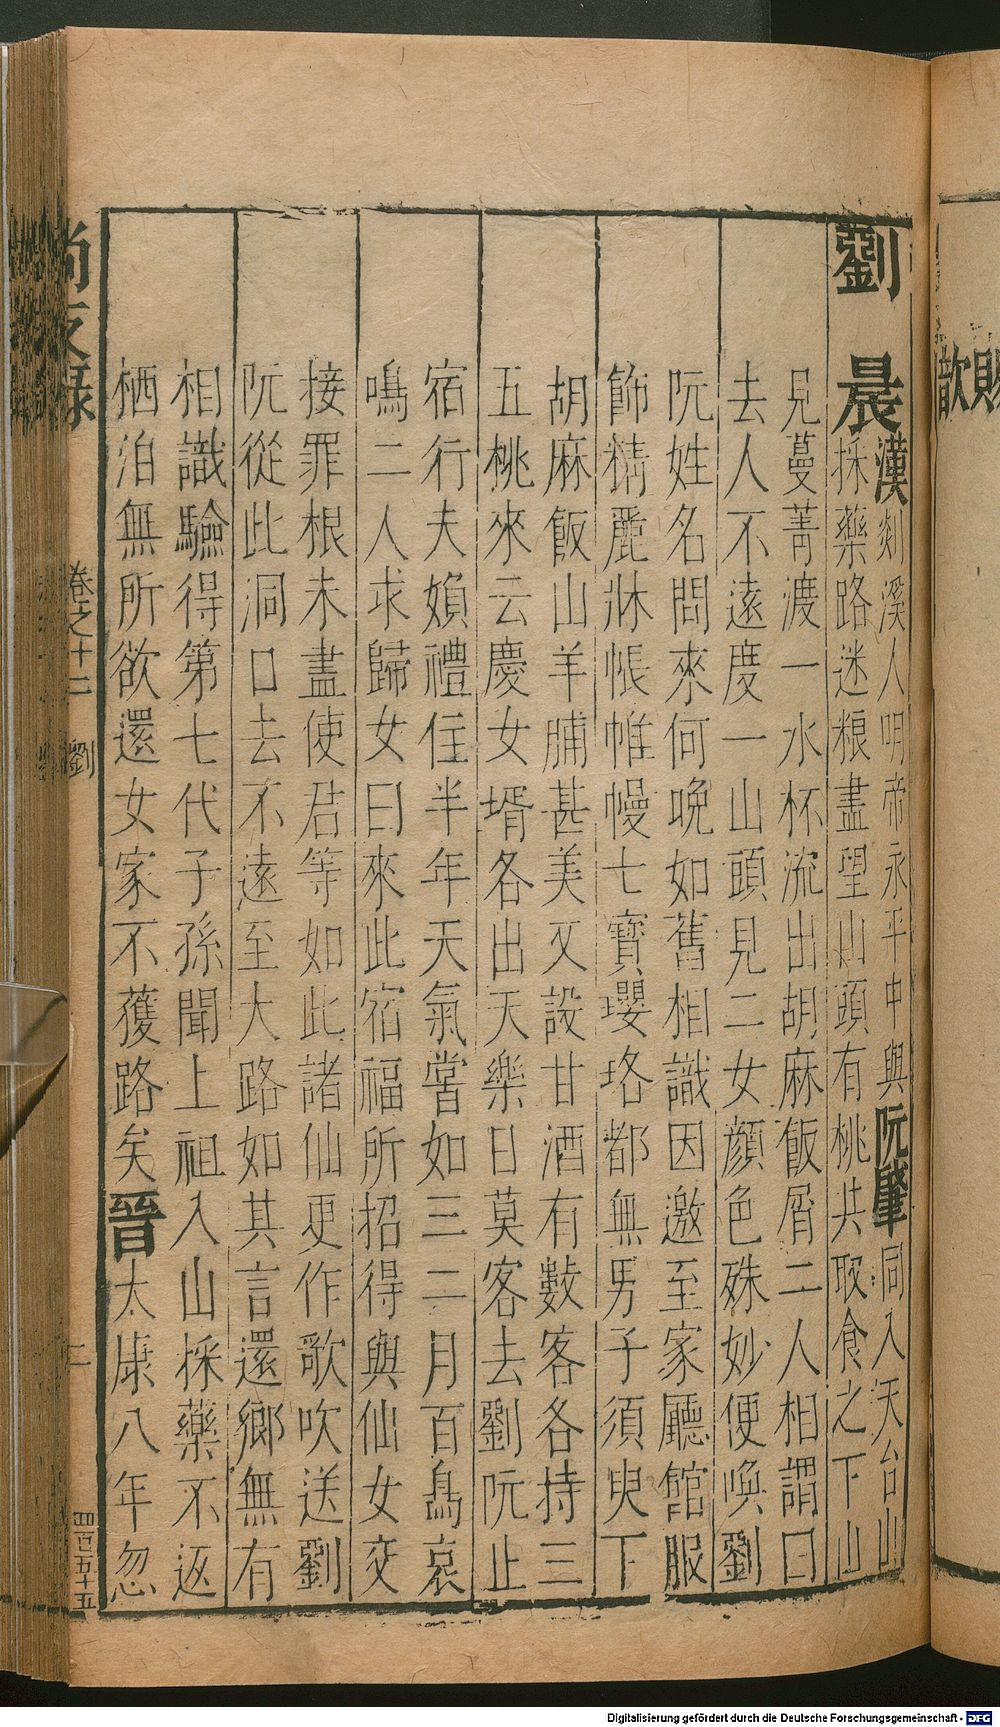 劉晨
漢剡溪人明帝永平中與阮肇同入天台山
採藥路迷粮盡望山頭有桃共取食之下山
見蔓菁渡一水杯流出胡麻飯屑二人相謂曰
去人不遠度一山頭見二女顔色殊妙便喚劉
阮姓名問來何晩如舊相識因邀至家廳館服
飾精麗牀帳帷幔七寶瓔珞都無男子須臾下
胡麻飯山羊脯甚美又設甘酒有數客各持三
五桃來云慶女壻各出天樂日莫客去劉阮止
宿行夫婦禮住半年天氣嘗如三二月百鳥哀
鳴二人求歸女曰來此宿福所招得與仙女交
接罪根未盡使君等如此諸仙更作歌吹送劉
阮從此洞口去不遠至大路如其言還鄉無有
相識驗得第七代子孫聞上祖入山採藥不返
栖泊無所欲還女家不獲路矣晉太康八年忽
尚友錄 卷之十二 劉 二 四百五十五
Digitalisierung gefördert durch die Deutsche Forschungsgemeinschaft - DFG